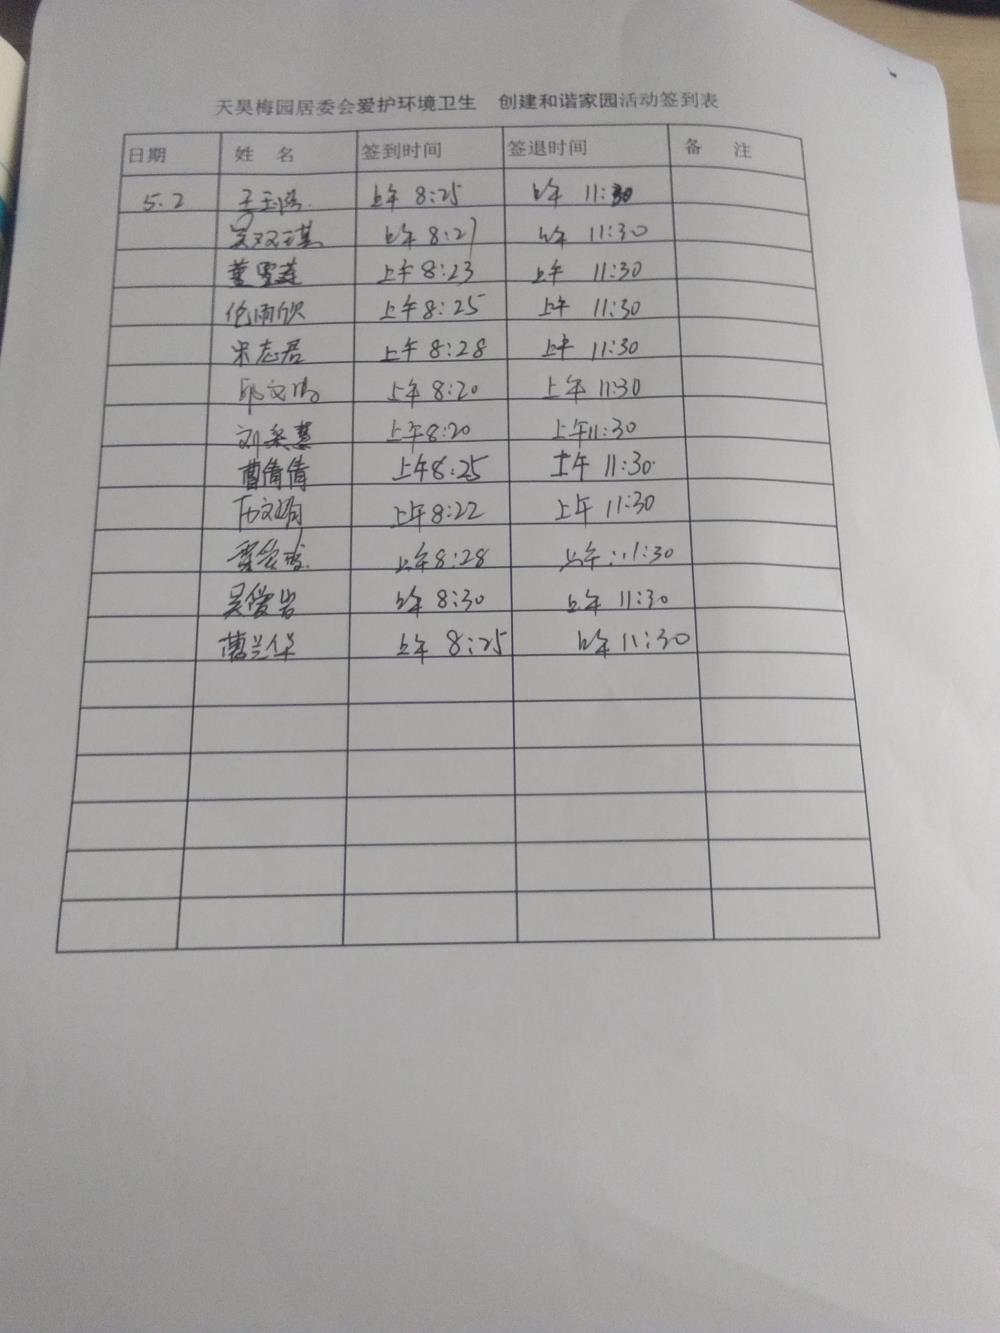 天昊梅园居委会爱护环境卫生 创建和谐家园活动签到表
日期 姓 名 签到时间 签退时间 备 注
5.2 上午 8:25 上午 11:30
吴双琪 上午 8:27 上午 11:30
董雪莲 上午 8:23 上午 11:30
伦雨欣 上午 8:25 上午 11:30
宋志君 上午 8:28 上午 11:30
邱文 上午 8:20 上午 11:30
刘采慧 上午 8:20 上午 11:30
曹倩倩 上午 8:25 上午 11:30
上午 8:22 上午 11:30
上午 8:28 上午 11:30
吴俊岩 上午 8:30 上午 11:30
兰华 上午 8:25 上午 11:30